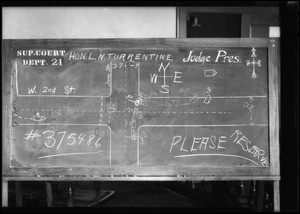 SUP. COURT HON. L. N. TURRENTINE, Judge Pres.
DEPT. 21
N
W E
S
W. 2nd St
#375486
PLEASE
RESERVE